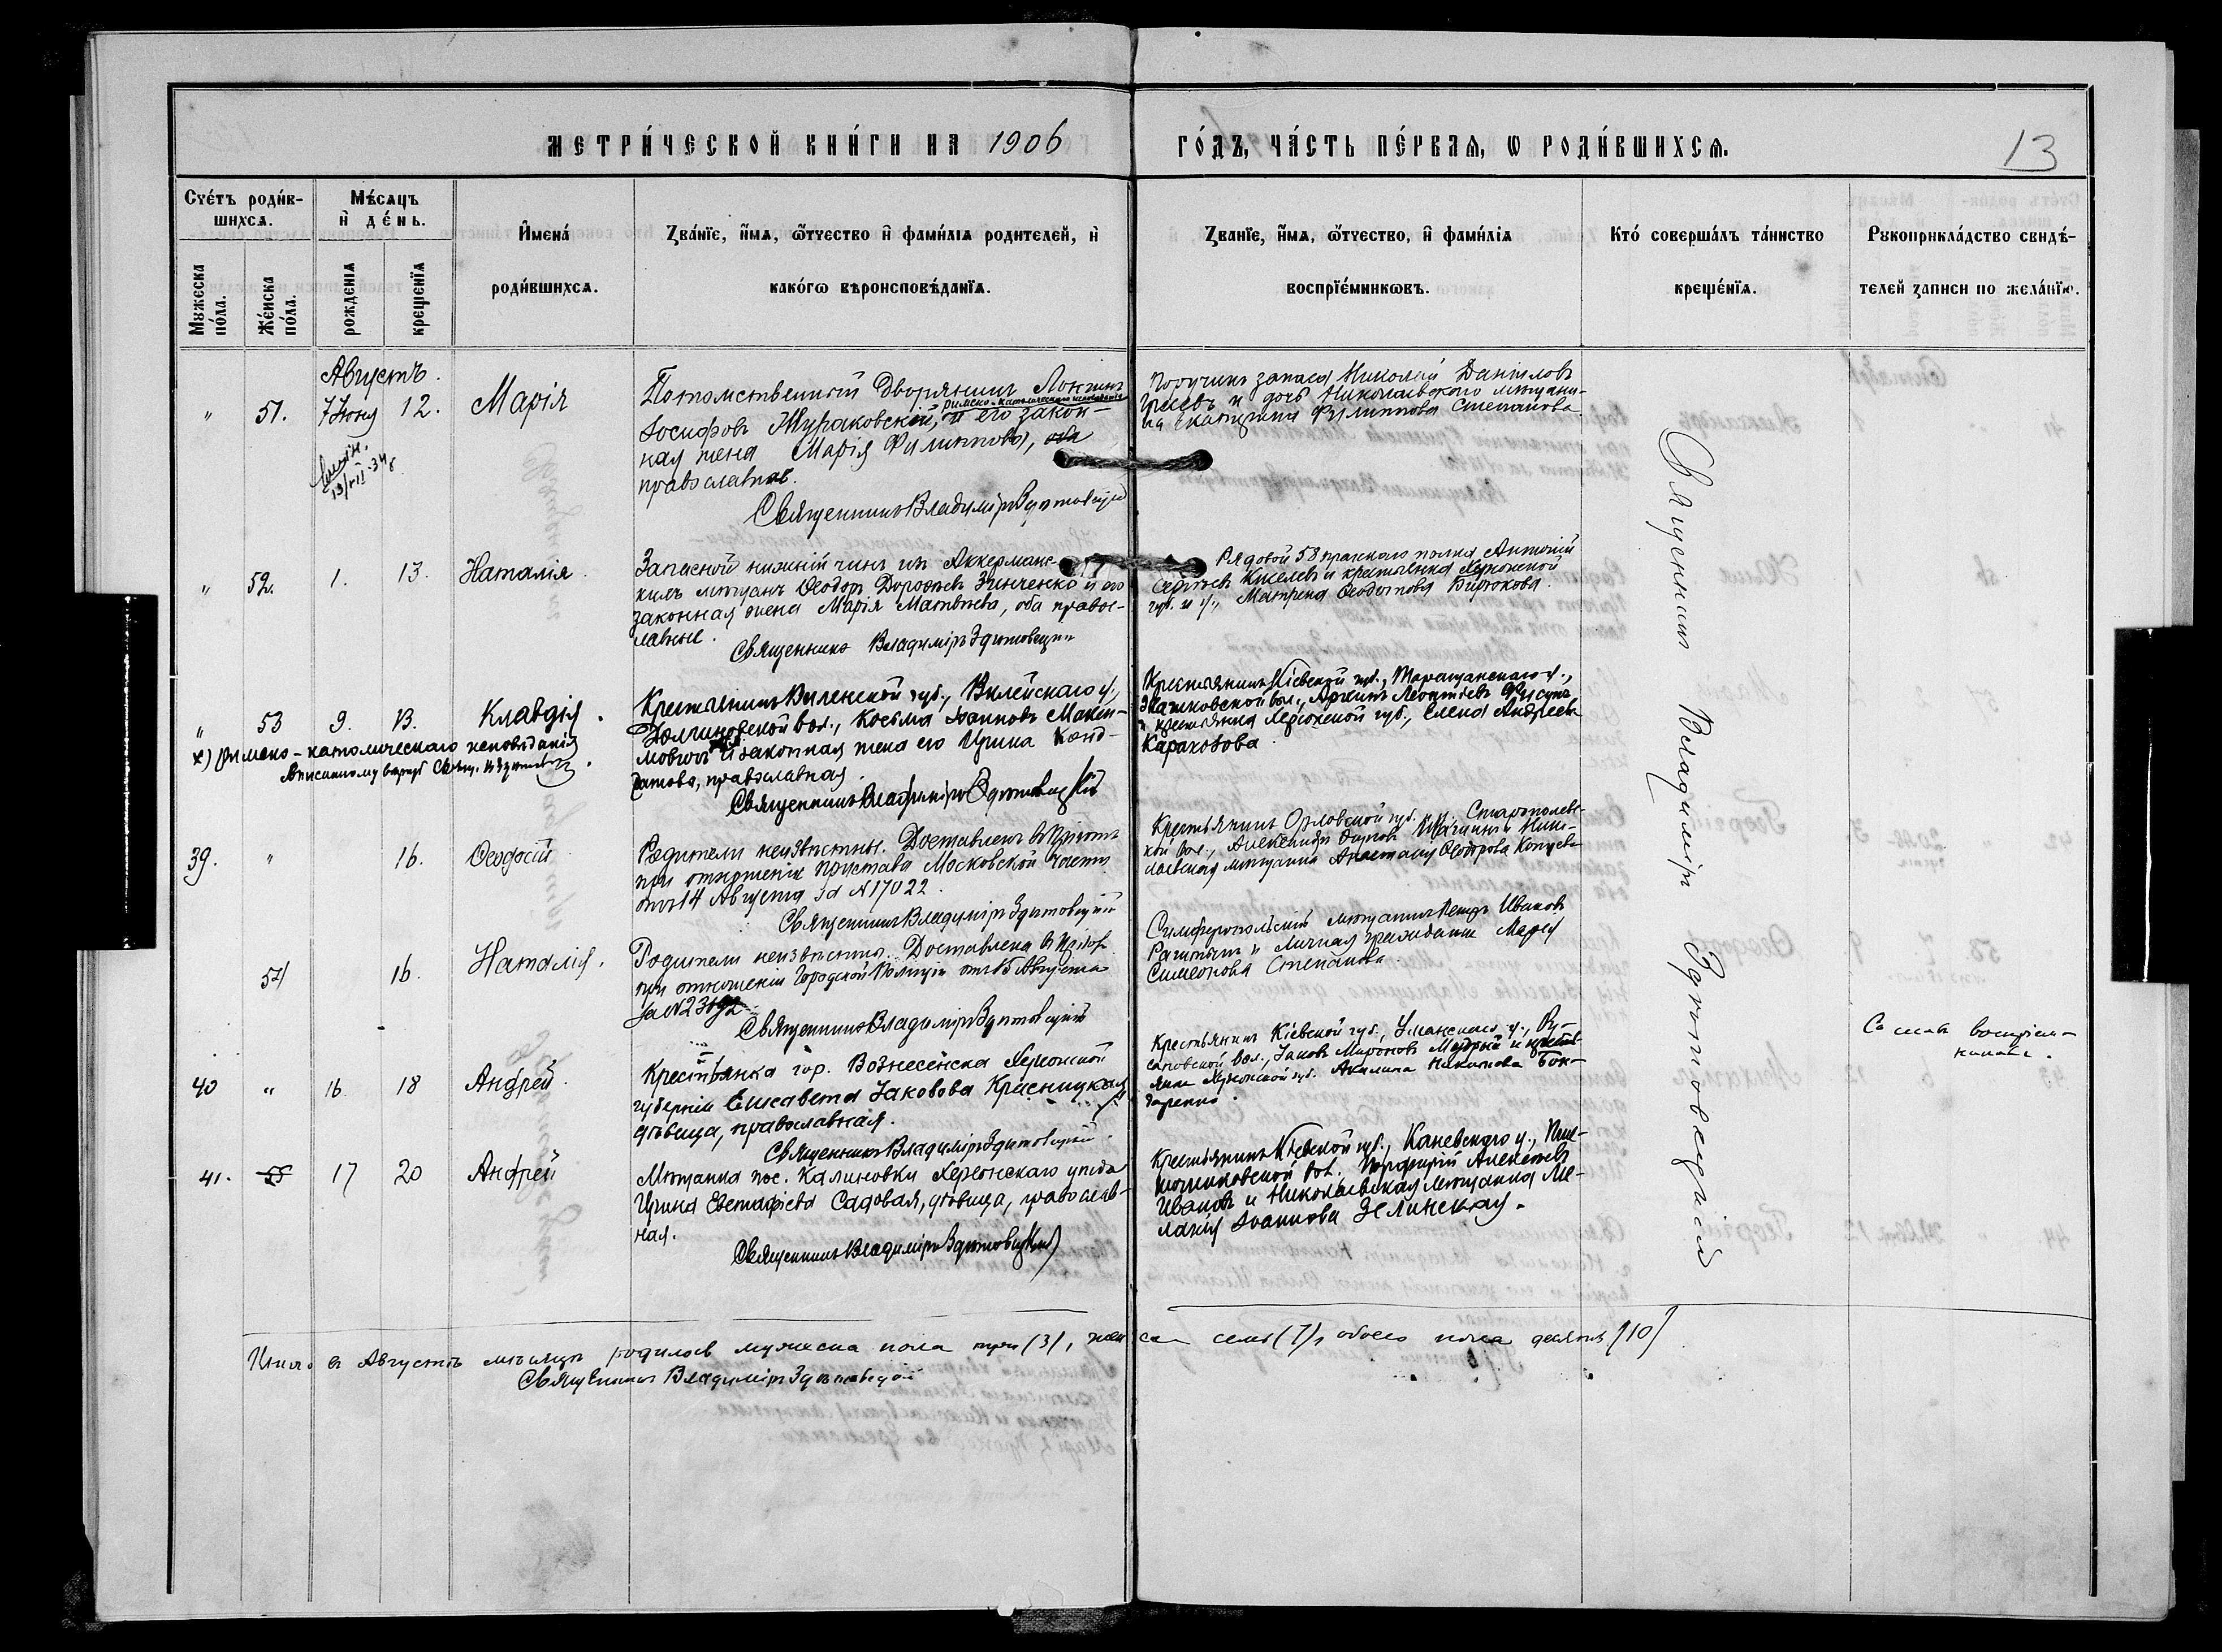 МЕТРИ́ЧЕСКОЙ КНИ́ГИ НА 1906
ГО́ДЪ, ЧА́СТЬ ПЕ́РВАѦ, Ѡ РОДИ́ВШИХСѦ.
13
Счетъ роди́в-
шихсѧ.
Мѣ́сѧцъ
и҆ де́нь.
Мꙋжеска
по́ла.
Же́нска
по́ла.
рожденїѧ
крещенїѧ
И҆мена́
роди́вшихсѧ.
Зва́нїе, и҆́мѧ, ѻ҆́тчество и҆ фами́лїѧ родителей, и҆
како́гѡ вѣроисповѣ́данїѧ.
Званїе, и҆́мѧ, ѻ҆́тчество, и҆ фами́лїѧ
воспрїе́мникѡвъ.
Кто́ соверша́лъ та́инство
креще́нїѧ.
Рꙋкоприкла́дство свидѣ́-
телей записи по жела́нїю.
Августъ.
" 51. 7 Іюня 12. Марія
13/VII-34
Потомственный Дворянинъ Лонгинъ
Іосифовъ Жураковскій, римско-католическаго исповѣданія и его закон-
ная жена Марія Филиппова, оба
православная.
Священникъ Владиміръ Здитовецкій
Поручикъ запаса Николай Даниловъ
и дочь Николаевскаго мѣщани-
на Екатерина Филиппова Степанова.
" 52. 1. 13. Наталія.
Запасной нижній чинъ изъ Аккерманс-
кихъ мѣщанъ Ѳеодоръ Дороѳеевъ Зинченко и его
законная жена Марія Матвѣева, оба правос-
лавные.
Священникъ Владиміръ Здитовецкій
Рядовой 58 пражскаго полка, Антоній
Сергѣевъ Киселевъ и крестьянка Херсонской
губ. и у., Матрена Ѳеодотова Бирюкова.
" 53 9. 13. Клавдія.
х) Римско-католическаго исповѣданія
Крестьянинъ Виленской губ., Вилейскаго у.,
Долгиновской вол., Косьма Іоанновъ Макси-
мовичъ и законная жена его Ирина Конд-
ратова, православная.
Священникъ Владиміръ Здитовецкій
Крестьянинъ Кіевской губ., Таращанскаго у.,
вол., Архипъ Леонтіевъ Фисунъ
и крестьянка Херсонской губ., Елена Андреева
Каракозова.
39. " 16. Ѳеодосій
Родители неизвѣстны. Доставленъ въ Пріютъ
при отношеніи Пристава Московской части
отъ 14 Августа за N 17022.
Священникъ Владиміръ Здитовецкій
Крестьянинъ Орловской губ., Старополев-
кой вол., Александръ и Нико-
лаевская мѣщанка Анастасія Ѳеодорова
54 16. Наталія.
Родители неизвѣстны. Доставлена въ Пріютъ
при отношеніи Городской Полиціи отъ 15 Августа
за N
Священникъ Владиміръ Здитовецкій
Симферопольскій мѣщанинъ Петръ Ивановъ
и личная гражданка Марія
Симеонова Степанова.
40 " 16 18 Андрей.
Крестьянка гор. Вознесенска Херсонской
губерніи Елисавета Іаковова Красницкая
дѣвица, православная.
Священникъ Владиміръ Здитовецкій.
Крестьянинъ Кіевской губ., Уманскаго у.,
вол., Іаковъ Мироновъ Мудрый и кресть-
янка Херсонской губ. Акилина Никитова Бон-
даренко.
41. 55 17 20 Андрей
Мѣщанка пос. Калиновки Херсонскаго уѣзда
Ирина Евстафіева Садовая, дѣвица, православ-
ная.
Священникъ Владиміръ Здитовецкій
Крестьянинъ Кіевской губ., Каневскаго у.,
вол. Порфирій Алексѣевъ
Ивановъ и Николаевская мѣщанка Ме-
ланія Іоаннова Зелинская.
Священникъ Владиміръ Здитовецкій
Итого въ Августѣ мѣсяцѣ родилось мужеска пола три (3), женска семь (7), обоего пола десять (10)
Священникъ Владиміръ Здитовецкій